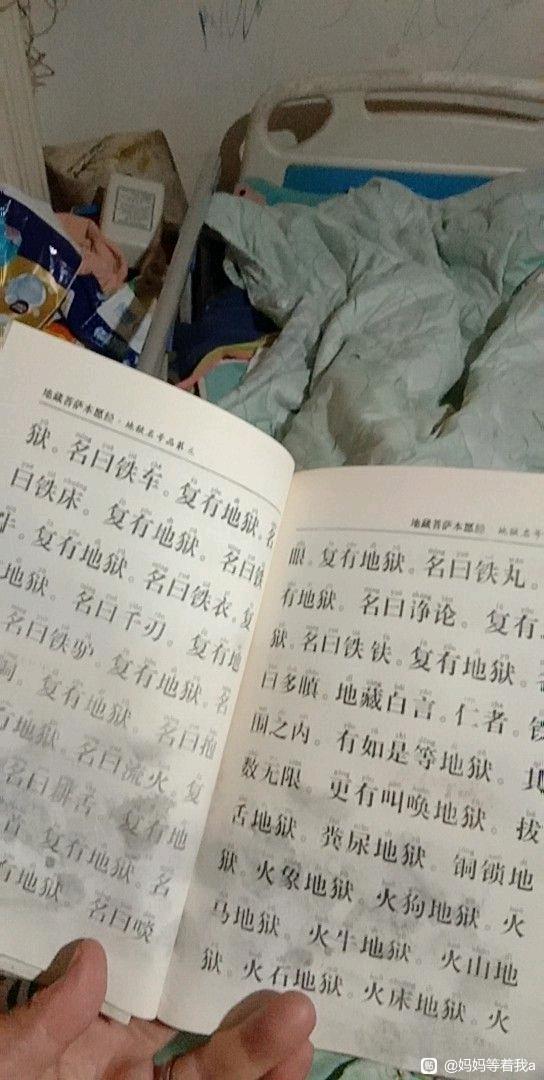 地藏菩萨本愿经·地狱名号品第五
狱。名曰铁车。复有地狱。名
曰铁床。复有地狱。名曰铁
牛。复有地狱。名曰铁衣。复
地狱。名曰千刃。复有地
名曰铁驴。复有地狱。名
洞。复有地狱。名曰抱
有地狱。名曰流火。复
名曰耕舌。复有地
首。复有地狱。名
有地狱。名曰啖
地藏菩萨本愿经 地狱名号
眼。复有地狱。名曰铁丸。
有地狱。名曰诤论。复有
狱。名曰铁铢。复有地狱。
曰多瞋。地藏白言。仁者。铁
围之内。有如是等地狱。其
数无限。更有叫唤地狱。拔
舌地狱。粪尿地狱。铜锁地
狱。火象地狱。火狗地狱。火
马地狱。火牛地狱。火山地
狱。火石地狱。火床地狱。火
@妈妈等着我a